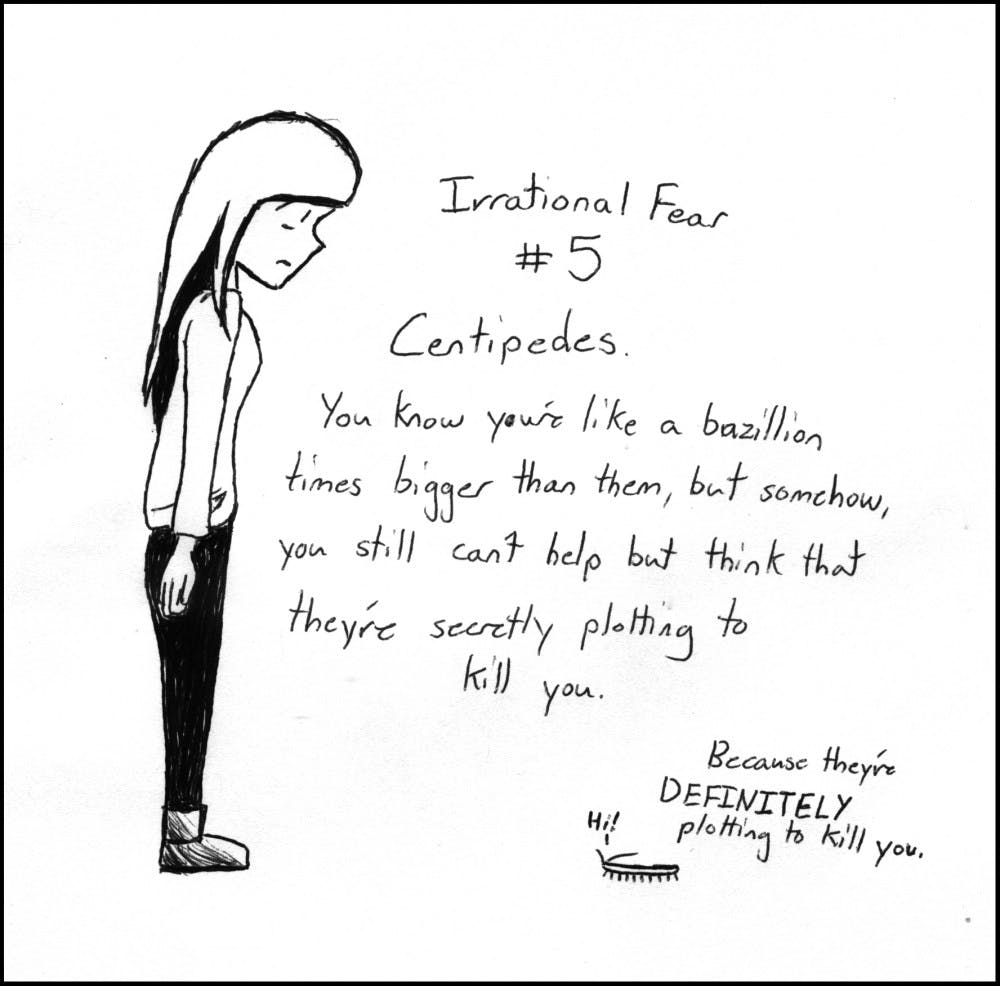 Irrational Fear
#5
Centipedes.
You know you're like a bazillion
times bigger than them, but somehow,
you still can't help but think that
they're secretly plotting to
kill you.
Because they're
DEFINITELY
plotting to kill you.
Hi!